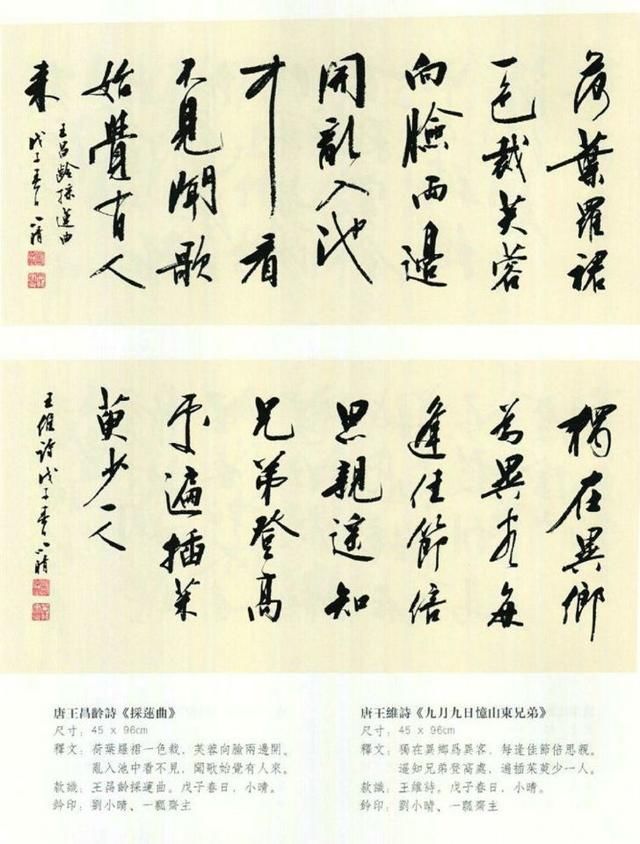 荷葉羅裙
一色裁芙蓉
向臉兩邊
開亂入池
中看
不見聞歌
始覺有人
来
王昌齡採蓮曲
戊子春日小晴
獨在異鄉
為異客每
逢佳節倍
思親遥知
兄弟登高
處遍插茱
萸少一人
王維詩戊子春日小晴
唐王昌齡詩《採蓮曲》
尺寸：45 x 96cm
釋文：荷葉羅裙一色裁，芙蓉向臉兩邊開。
亂入池中看不見，聞歌始覺有人來。
款識：王昌齡採蓮曲。戊子春日，小晴。
鈐印：劉小晴、一瓢齋主
唐王維詩《九月九日憶山東兄弟》
尺寸：45 x 96cm
釋文：獨在異鄉為異客，每逢佳節倍思親。
遥知兄弟登高處，遍插茱萸少一人。
款識：王維待。戊子春日，小晴。
鈐印：劉小晴、一瓢齋主